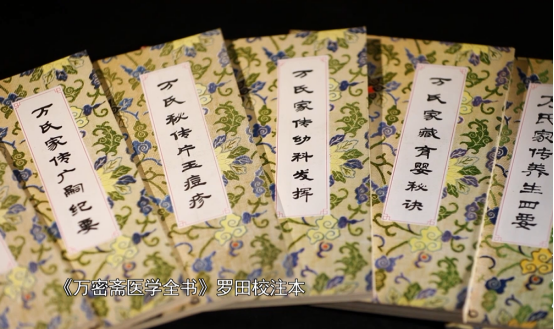 万氏家传广嗣纪要
万氏秘传片玉痘疹
万氏家传幼科发挥
万氏家藏育婴秘诀
万氏家传养生四要
《万密斋医学全书》罗田校注本